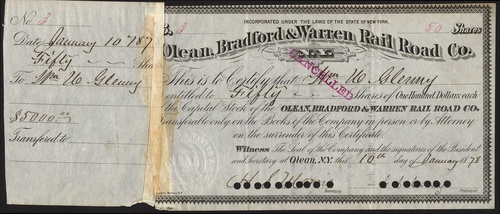 No 3
Date January 10 187
Fifty Sha
To Wm H. Glenny
$5000.00
Transfered to
INCORPORATED UNDER THE LAWS OF THE STATE OF NEW YORK.
3
50 Shares
Olean, Bradford & Warren Rail Road Co.
CANCELLED
This is to Certify that Wm H. Glenny
entitled to Fifty Shares of One Hundred Dollars each
the Capital Stock of the OLEAN, BRADFORD & WARREN RAIL ROAD CO.
Transferable only on the Books of the Company in person or by Attorney
on the surrender of this Certificate.
Witness the Seal of the Company and the signatures of the President
and Secretary at Olean, N.Y. this 10th day of January 1878